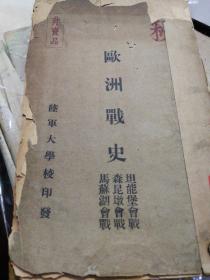 非賣品
歐洲戰史
坦能堡會戰
森昆墩會戰
馬蘇湖會戰
陸軍大學校印發